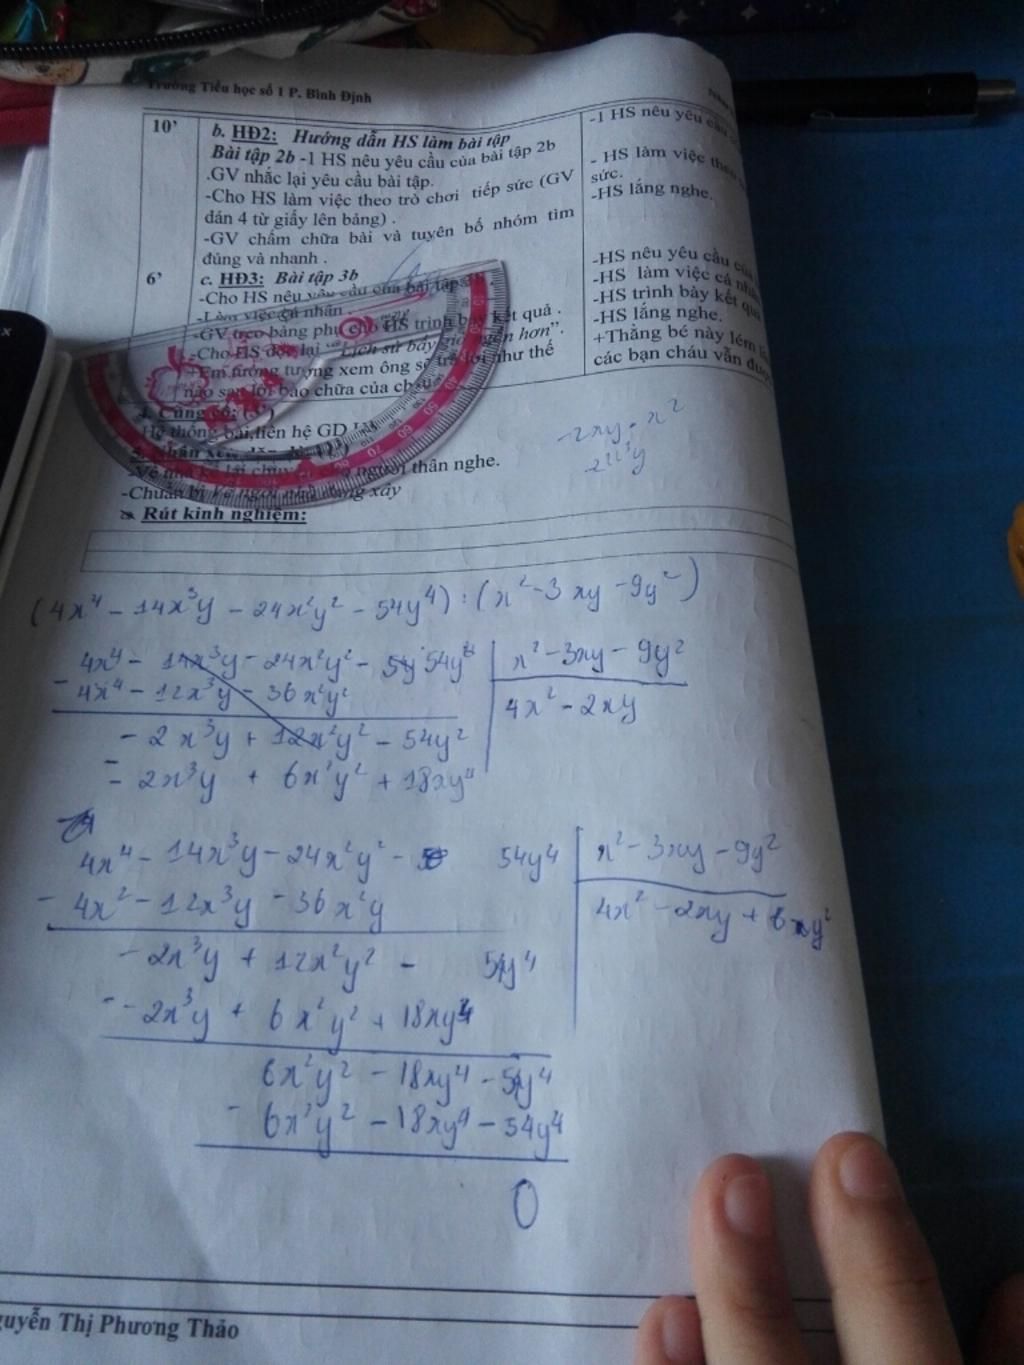 Trường Tiểu học số 1 P. Bình Định
10’
b. HĐ2: Hướng dẫn HS làm bài tập
Bài tập 2b -1 HS nêu yêu cầu của bài tập 2b
.GV nhắc lại yêu cầu bài tập.
-Cho HS làm việc theo trò chơi tiếp sức (GV
dán 4 từ giấy lên bảng) .
-GV chấm chữa bài và tuyên bố nhóm tìm
đúng và nhanh .
6’
c. HĐ3: Bài tập 3b
-Cho HS nêu yêu cầu của bài tập
-Làm việc cá nhân .
-GV treo bảng phụ cho HS trình bày kết quả .
-Cho HS đọc lại “ Lịch sử bấy giờ ngắn hơn”.
+Em tưởng tượng xem ông sẽ trả lời như thế
nào sau lời bào chữa của cháu
-1 HS nêu yêu cầu
- HS làm việc theo
sức.
-HS lắng nghe.
-HS nêu yêu cầu của
-HS làm việc cá nhân
-HS trình bày kết quả
-HS lắng nghe.
+Thằng bé này lém
các bạn cháu vẫn được
4. Củng cố:
Hệ thống bài,liên hệ GD
5. Nhận xét
-Về nhà kể lại người thân nghe.
-Chuẩn bị
Rút kinh nghiệm:
-2xy . x²
(4x⁴ - 14x³y - 24x²y² - 54y⁴) : (x² - 3xy - 9y²)
4x⁴ - 14x³y - 24x²y² - 54y⁴ x² - 3xy - 9y²
- 4x⁴ - 12x³y - 36x²y² 4x² - 2xy
- 2x³y + 12x²y² - 54y²
- - 2x³y + 6x²y² + 18xy⁴
4x⁴ - 14x³y - 24x²y² - 54y⁴ x² - 3xy - 9y²
- 4x² - 12x³y - 36x²y 4x² - 2xy + 6xy²
- 2x³y + 12x²y² - 54y⁴
- - 2x³y + 6x²y² + 18xy⁴
6x²y² - 18xy⁴ - 54y⁴
- 6x²y² - 18xy⁴ - 54y⁴
0
guyễn Thị Phương Thảo